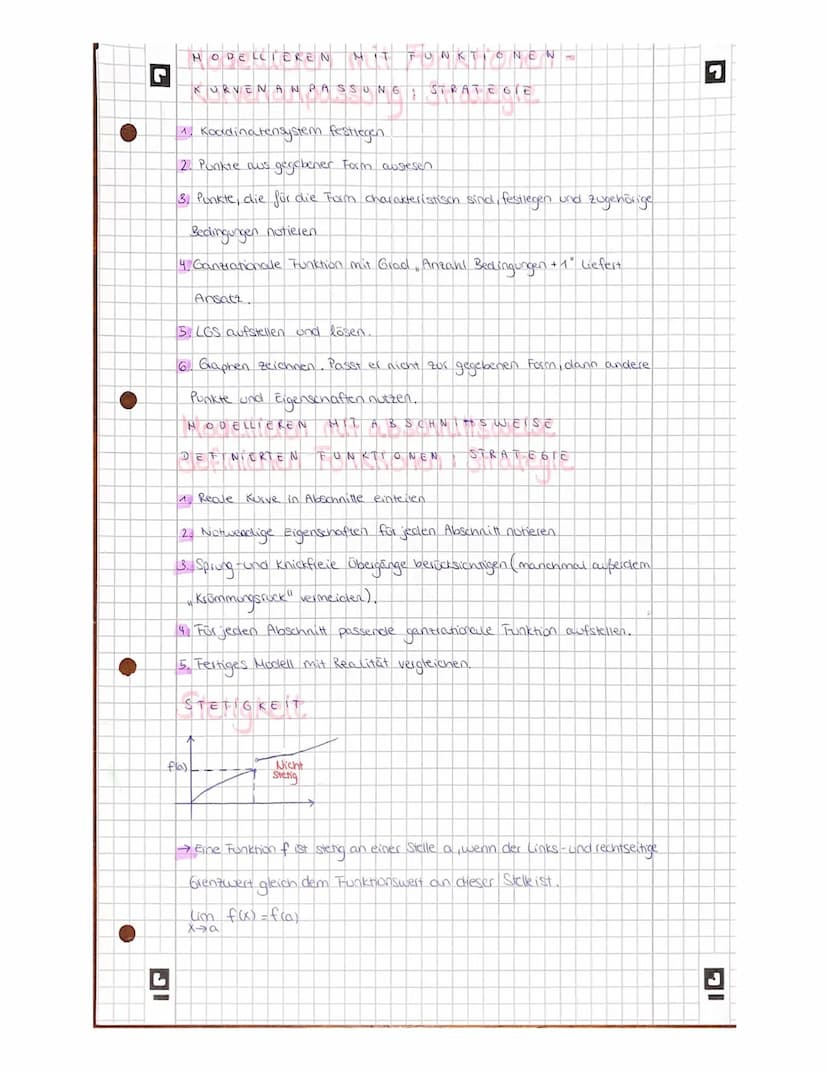 MODELLIEREN MIT FUNKTIONEN -
KURVENANPASSUNG : STRATEGIE
1. Koordinatensystem festlegen
2. Punkte aus gegebener Form auslesen
3. Punkte, die für die Form charakteristisch sind, festlegen und zugehörige
Bedingungen notieren
4. Ganzrationale Funktion mit Grad „Anzahl Bedingungen + 1" liefert
Ansatz.
5. LGS aufstellen und lösen.
6. Graphen zeichnen. Passt er nicht zur gegebenen Form, dann andere
Punkte und Eigenschaften nutzen.
MODELLIEREN MIT ABSCHNITTSWEISE
DEFINIERTEN FUNKTIONEN : STRATEGIE
1. Reale Kurve in Abschnitte einteilen
2. Notwendige Eigenschaften für jeden Abschnitt notieren
3. Sprung- und Knickfreie Übergänge berücksichtigen (manchmal außerdem
„Krümmungsruck" vermeiden).
4. Für jeden Abschnitt passende ganzrationale Funktion aufstellen.
5. Fertiges Modell mit Realität vergleichen.
STETIGKEIT
f(a)
Nicht
stetig
→ Eine Funktion f ist stetig an einer Stelle a, wenn der Links- und rechtseitige
Grenzwert gleich dem Funktionswert an dieser Stelle ist.
lim f(x) = f(a)
x→a